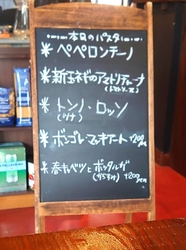 本日のパスター
＊ペペロンチーノ
＊新玉ネギのアマトリチャーナ
(トマトソース)
＊トンノ・ロッソ
(ツナ)
＊ボンゴレ・マキアート +200yen
＊春キャベツとボッタルガ
(からすみ) +200yen